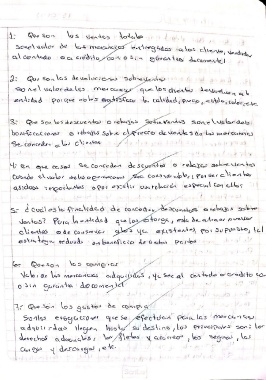 1: Que son las ventas totales
Son el valor de las mercancías entregadas a los clientes, vendidas
al contado o a crédito, con o sin garantía documental
2: Que son las devoluciones sobre ventas
son el valor de las mercancías que los clientes devuelven a la
entidad porque no les satisface la calidad, precio, estilo, color, etc
3: Que son los descuentos o rebajas sobre ventas son el valor de las
bonificaciones o rebajas sobre el precio de venta de las mercancías
se conceden a los clientes
4: en que casos se conceden descuentos o rebajas sobre ventas
cuando el valor de la operación sea considerable, por ser clientes
asiduos importantes o por existir una relación especial con ellos
5: ¿cuál es la finalidad de conceder descuentos o rebajas sobre
ventas? Para la entidad que los otorga, es la de atraer nuevos
clientes o de conservar a los ya existentes, por supuesto, tal
estrategia redunda en beneficio de ambas partes
6: Que son las compras
Valor de las mercancías adquiridas, ya sea al contado o a crédito co
o sin garantía documental
7: Que son los gastos de compra
Son las erogaciones que se efectúan para las mercancías
adquiridas lleguen hasta su destino, las principales son: los
derechos aduanales, los fletes y acarreos, los seguros, las
cargas y descargas, etc.